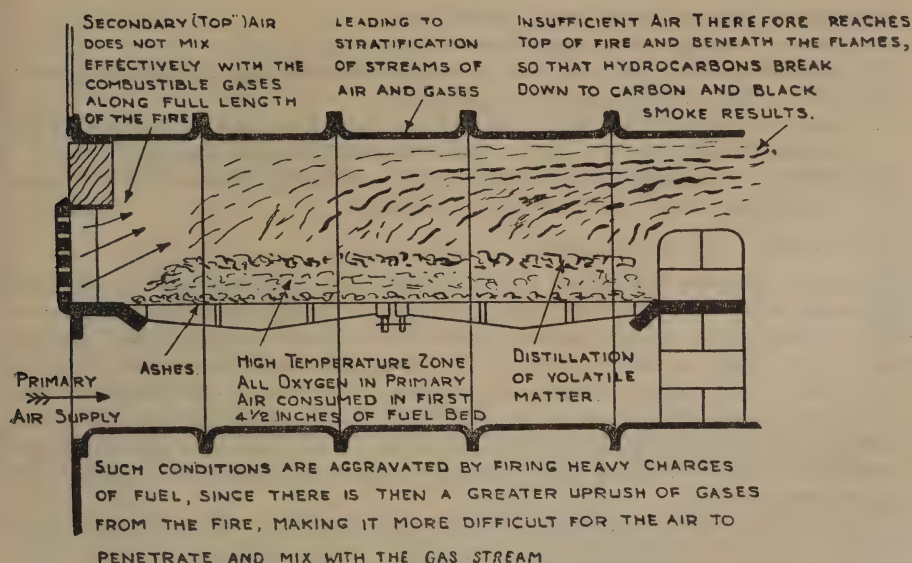 SECONDARY ("TOP") AIR
DOES NOT MIX
EFFECTIVELY WITH THE
COMBUSTIBLE GASES
ALONG FULL LENGTH
OF THE FIRE
LEADING TO
STRATIFICATION
OF STREAMS OF
AIR AND GASES
INSUFFICIENT AIR THEREFORE REACHES
TOP OF FIRE AND BENEATH THE FLAMES,
SO THAT HYDROCARBONS BREAK
DOWN TO CARBON AND BLACK
SMOKE RESULTS.
ASHES.
HIGH TEMPERATURE ZONE
ALL OXYGEN IN PRIMARY
AIR CONSUMED IN FIRST
4½ INCHES OF FUEL BED
DISTILLATION
OF VOLATILE
MATTER.
PRIMARY
AIR SUPPLY
SUCH CONDITIONS ARE AGGRAVATED BY FIRING HEAVY CHARGES
OF FUEL, SINCE THERE IS THEN A GREATER UPRUSH OF GASES
FROM THE FIRE, MAKING IT MORE DIFFICULT FOR THE AIR TO
PENETRATE AND MIX WITH THE GAS STREAM